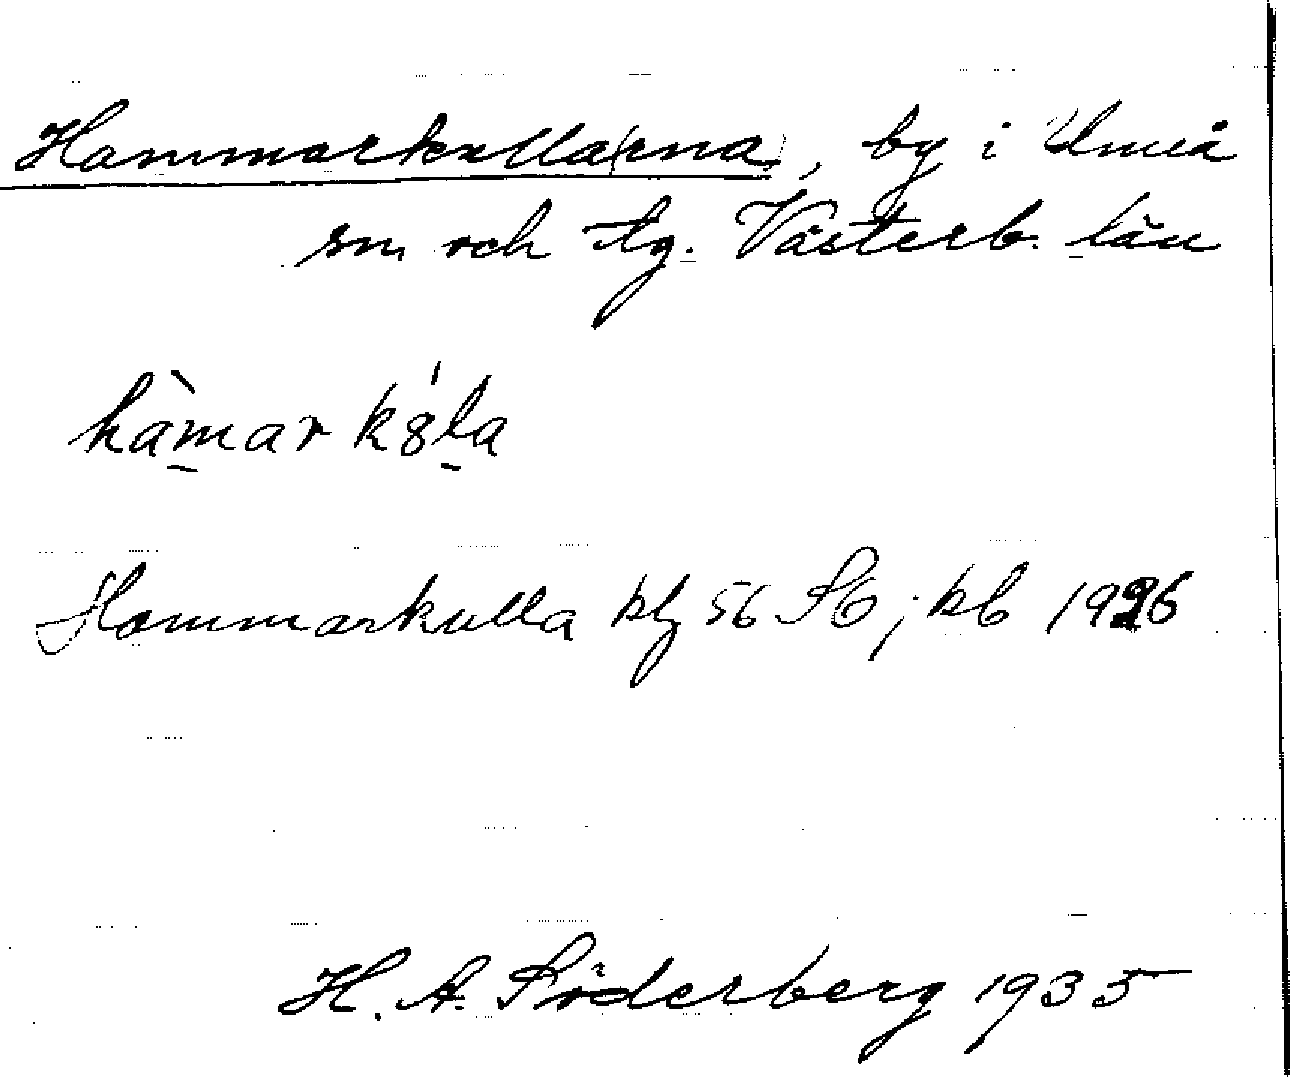 Hammarkulla(rna), by i Umeå
sn och tg. Västerb. län
hàmark8́la
Hammarkulla kbz 56 Sb; kb 1926
H. A. Söderberg 1935